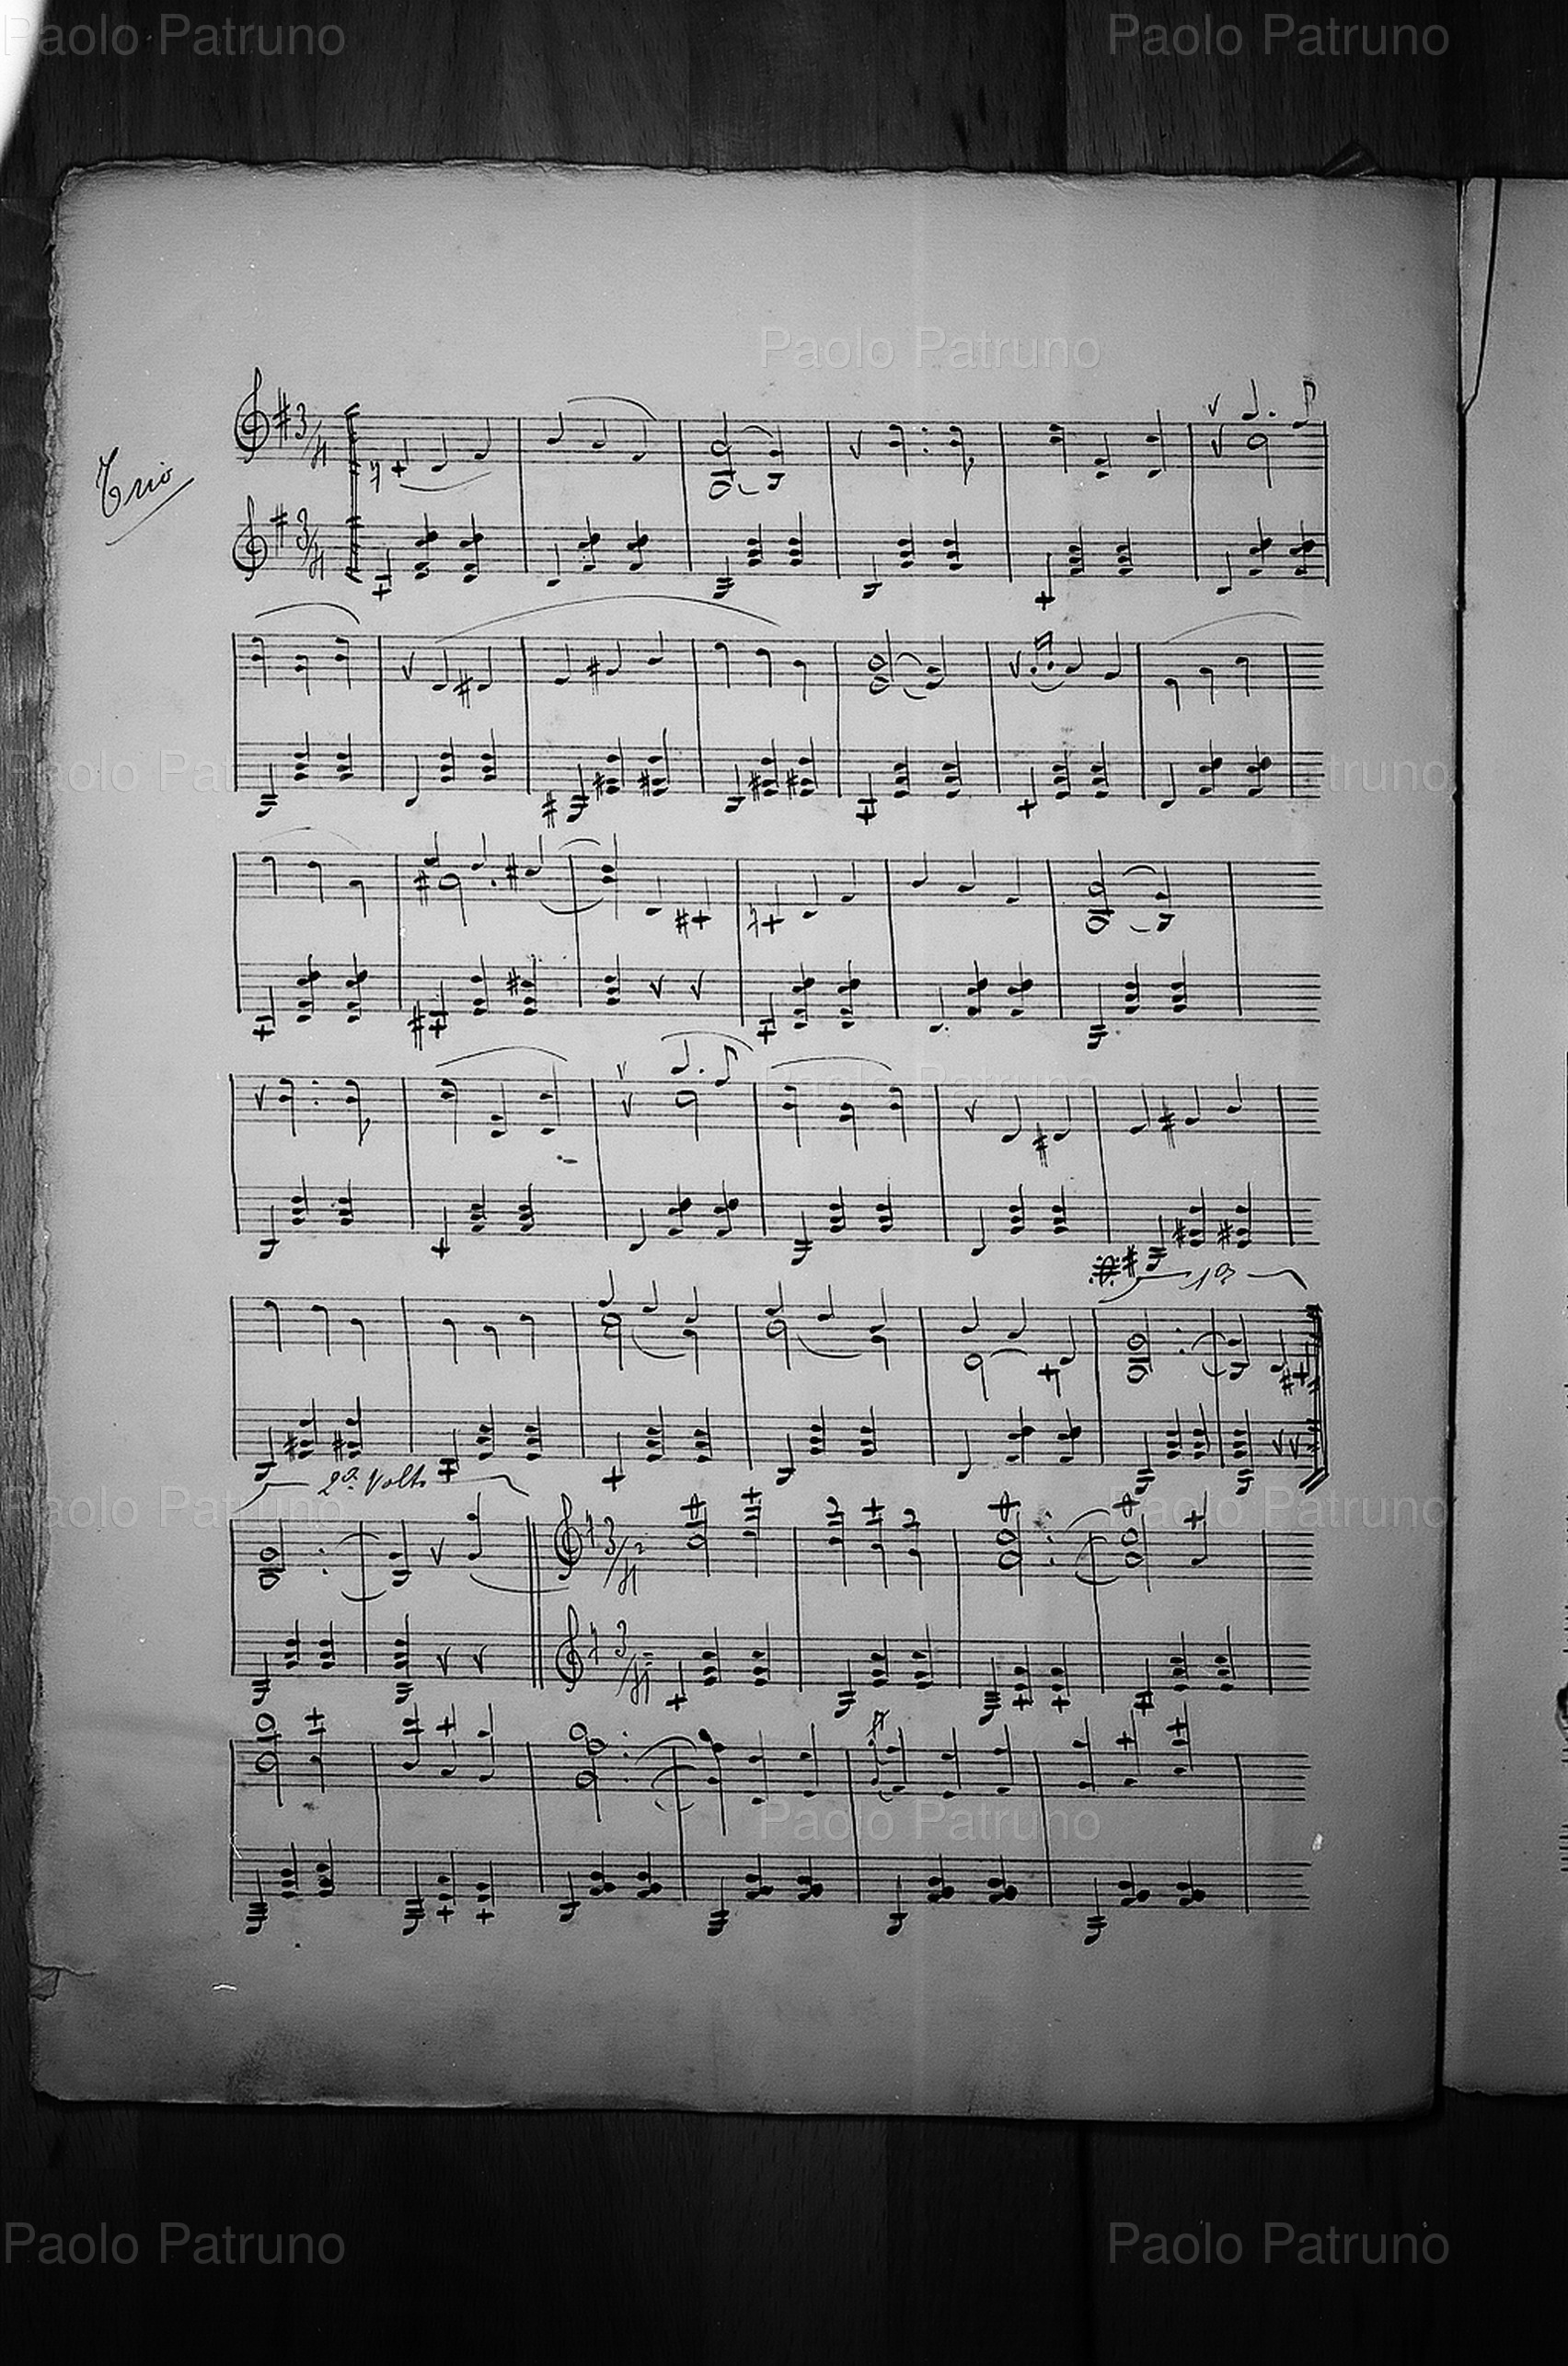 Paolo Patruno Paolo Patruno
Paolo Patruno
3/4
Trio
3/4
Paolo Patruno Paolo Patruno
Paolo Patruno
1a
2a Volta
Paolo Patruno Paolo Patruno
3/4
3/4
Paolo Patruno
Paolo Patruno Paolo Patruno